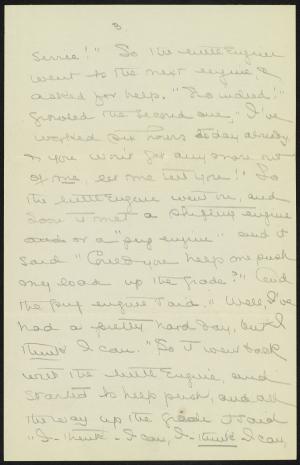 3
sirree!" So the little Engine
went to the next engine, &
asked for help. "No indeed!"
growled the second one, "I've
worked six hours today already
& you won't get any more out
of me, let me tell you!" So
the little Engine went on, and
soon it met a shifting engine
or a "pug engine" and it
said "Could you help me push
my load up the grade?" And
the pug engine said. "Well, I've
had a pretty hard day, but I
think I can." So it went back
with the little Engine, and
started to help push, and all
the way up the grade it said
"I-think-I can, I-think I can,